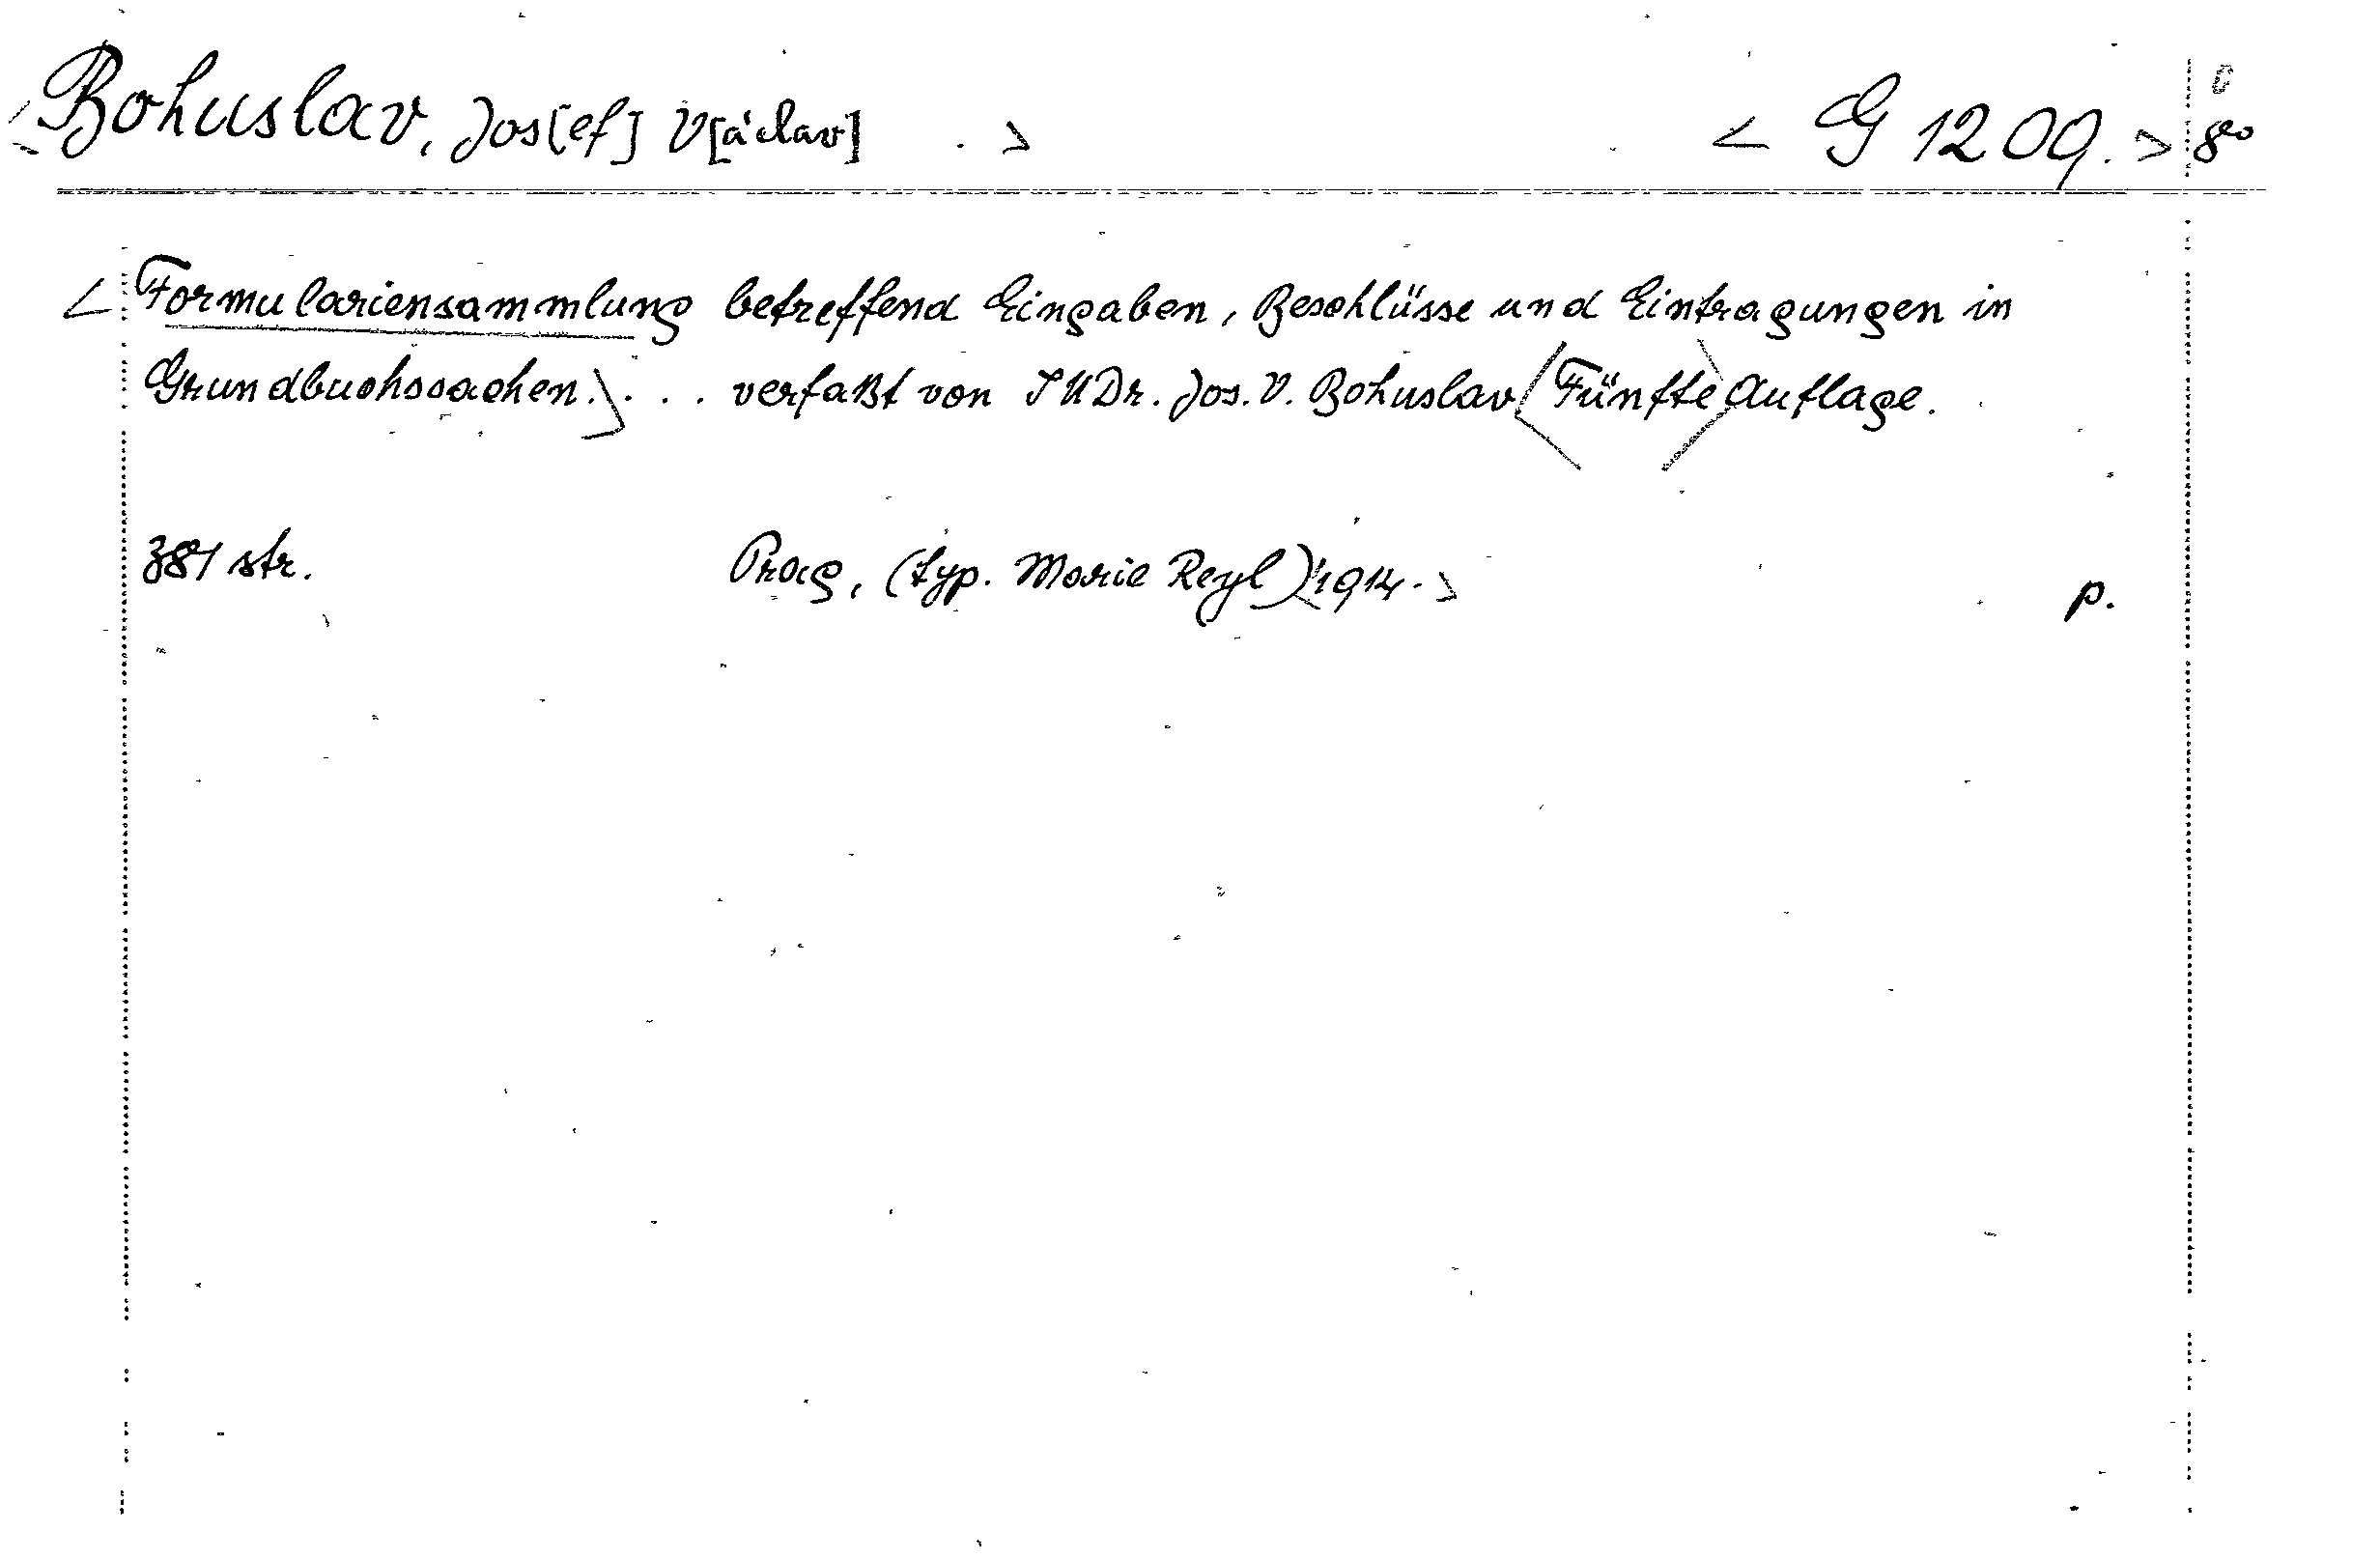 <Bohuslav, Jos[ef] V[áclav] . > < G 1209. > 8º
< Formulariensammlung betreffend Eingaben, Beschlüsse und Eintragungen in
Grundbuchssachen.> . . . verfaßt von JUDr. Jos. V. Bohuslav <Fünfte> Auflage.
381 str. Prag, (typ. Marie Reyl) <1914. > p.